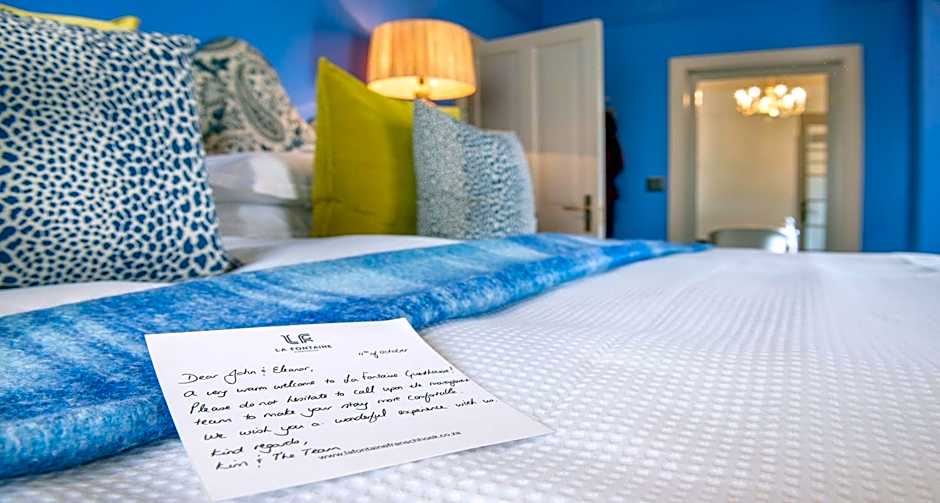 LF
LA FONTAINE
11th of October
Dear John & Eleanor,
A very warm welcome to La Fontaine Guesthouse!
Please do not hesitate to call upon the management
team to make your stay more comfortable.
We wish you a wonderful experience with us.
Kind regards,
& The Team
www.lafontainefranschhoek.co.za